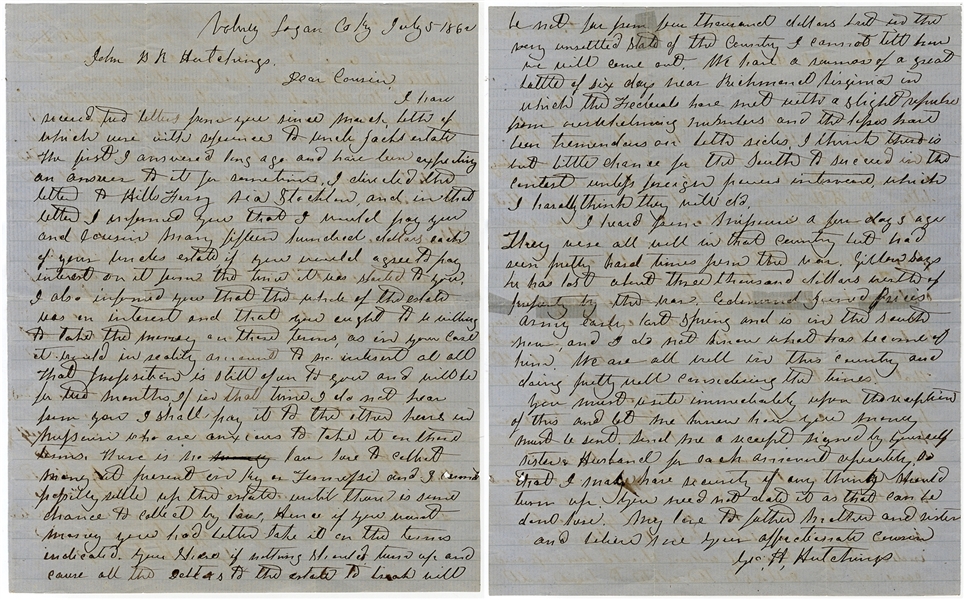 Volney Logan Co Ky July 5 1862
John D R Hutchings.
Dear Cousin,
I have
received two letters from you since March, both of
which were with reference to Uncle Jack's estate
the first I answered long ago and have been expecting
an answer to it for sometime, I directed the
letter to Hills Ferry via Stockton, and in that
letter I informed you that I would pay you
and cousin Mary fifteen hundred dollars each
of your uncles estate if you would agree to pay
interest on it from the time it was sent to you,
I also informed you that the whole of the estate
was on interest and that you ought to be willing
to take the money on those terms, as in your case
it would in reality amount to no interest at all
That proposition is still open to you and will be
for two months. If in that time I do not hear
from you I shall pay it to the other heirs in
Missouri who are anxious to take it on those
terms. There is no law here to collect
money at present in Ky or Tennessee and I cannot
possibly settle up the estate until there is some
chance to collect by law, Hence if you want
money you had better take it on the terms
indicated. Your share if nothing should turn up and
cause all the debtors to the estate to break will
be not far from four thousand dollars but in the
very unsettled state of the Country I cannot tell how
we will come out. We have a rumor of a great
battle of six days near Richmond Virginia in
which the Fecherals have met with a slight repulse
from overwhelming numbers and the losses have
been tremendous on both sides, I think there is
but little chance for the South to succeed in the
contest unless foreign powers intervene, which
I hardly think they will do.
I heard from Missouri a few days ago
They were all well in that country but had
seen pretty hard times from the war. Gillow says
he has lost about three thousand dollars worth of
property by the war. Edmund joined Prices
army early last Spring and is in the south
now, and I do not know what has become of
him. We are all well in this country and
doing pretty well considering the times.
You must write immediately upon the reception
of this and let me know how your money
must be sent. Send me a receipt signed by yourself
sister & Husband for each amount separately, so
that I may have security if any thing should
turn up. You need not date it as that can be
done here. My love to father Mother and sister
and believe me your affectionate cousin
Geo. A. Hutchings